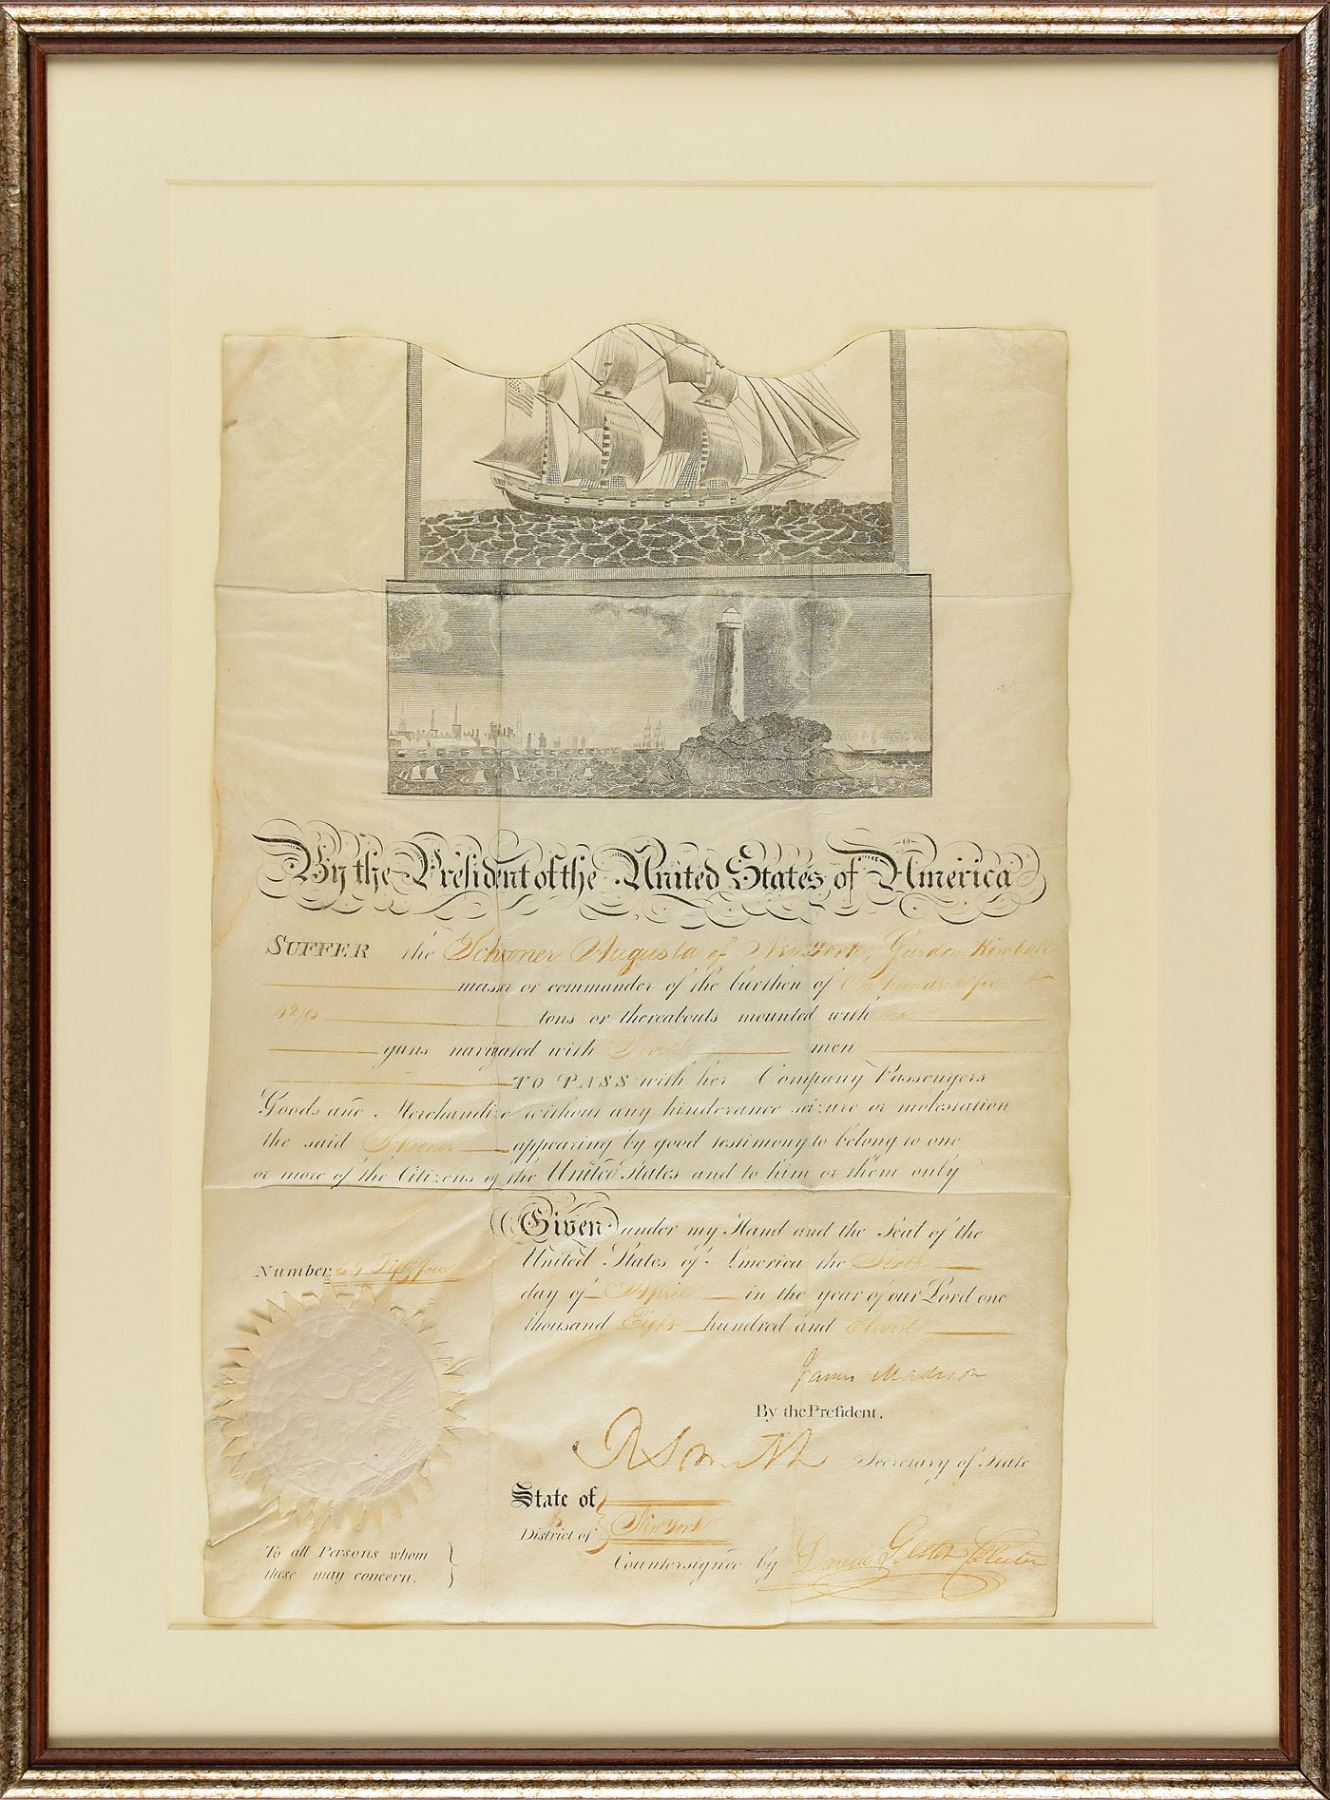 By the President of the United States of America
SUFFER the Schooner Augusta of New York, Gurdon Kimball
master or commander of the burthen of One hundred five
42/95 tons or thereabouts mounted with
guns navigated with men
TO PASS with her Company Passengers
Goods and Merchandize without any hinderance seizure or molestation
the said Schooner appearing by good testimony to belong to one
or more of the Citizens of the United States and to him or them only
Given under my Hand and the Seal of the
United States of America the Sixth
day of April in the year of our Lord one
thousand Eight hundred and Eleven
Number 54 Fifty four
James Madison
By the Preſident.
R Smith Secretary of State
State of
District of New York
Countersigned by Collector
To all Persons whom
these may concern.